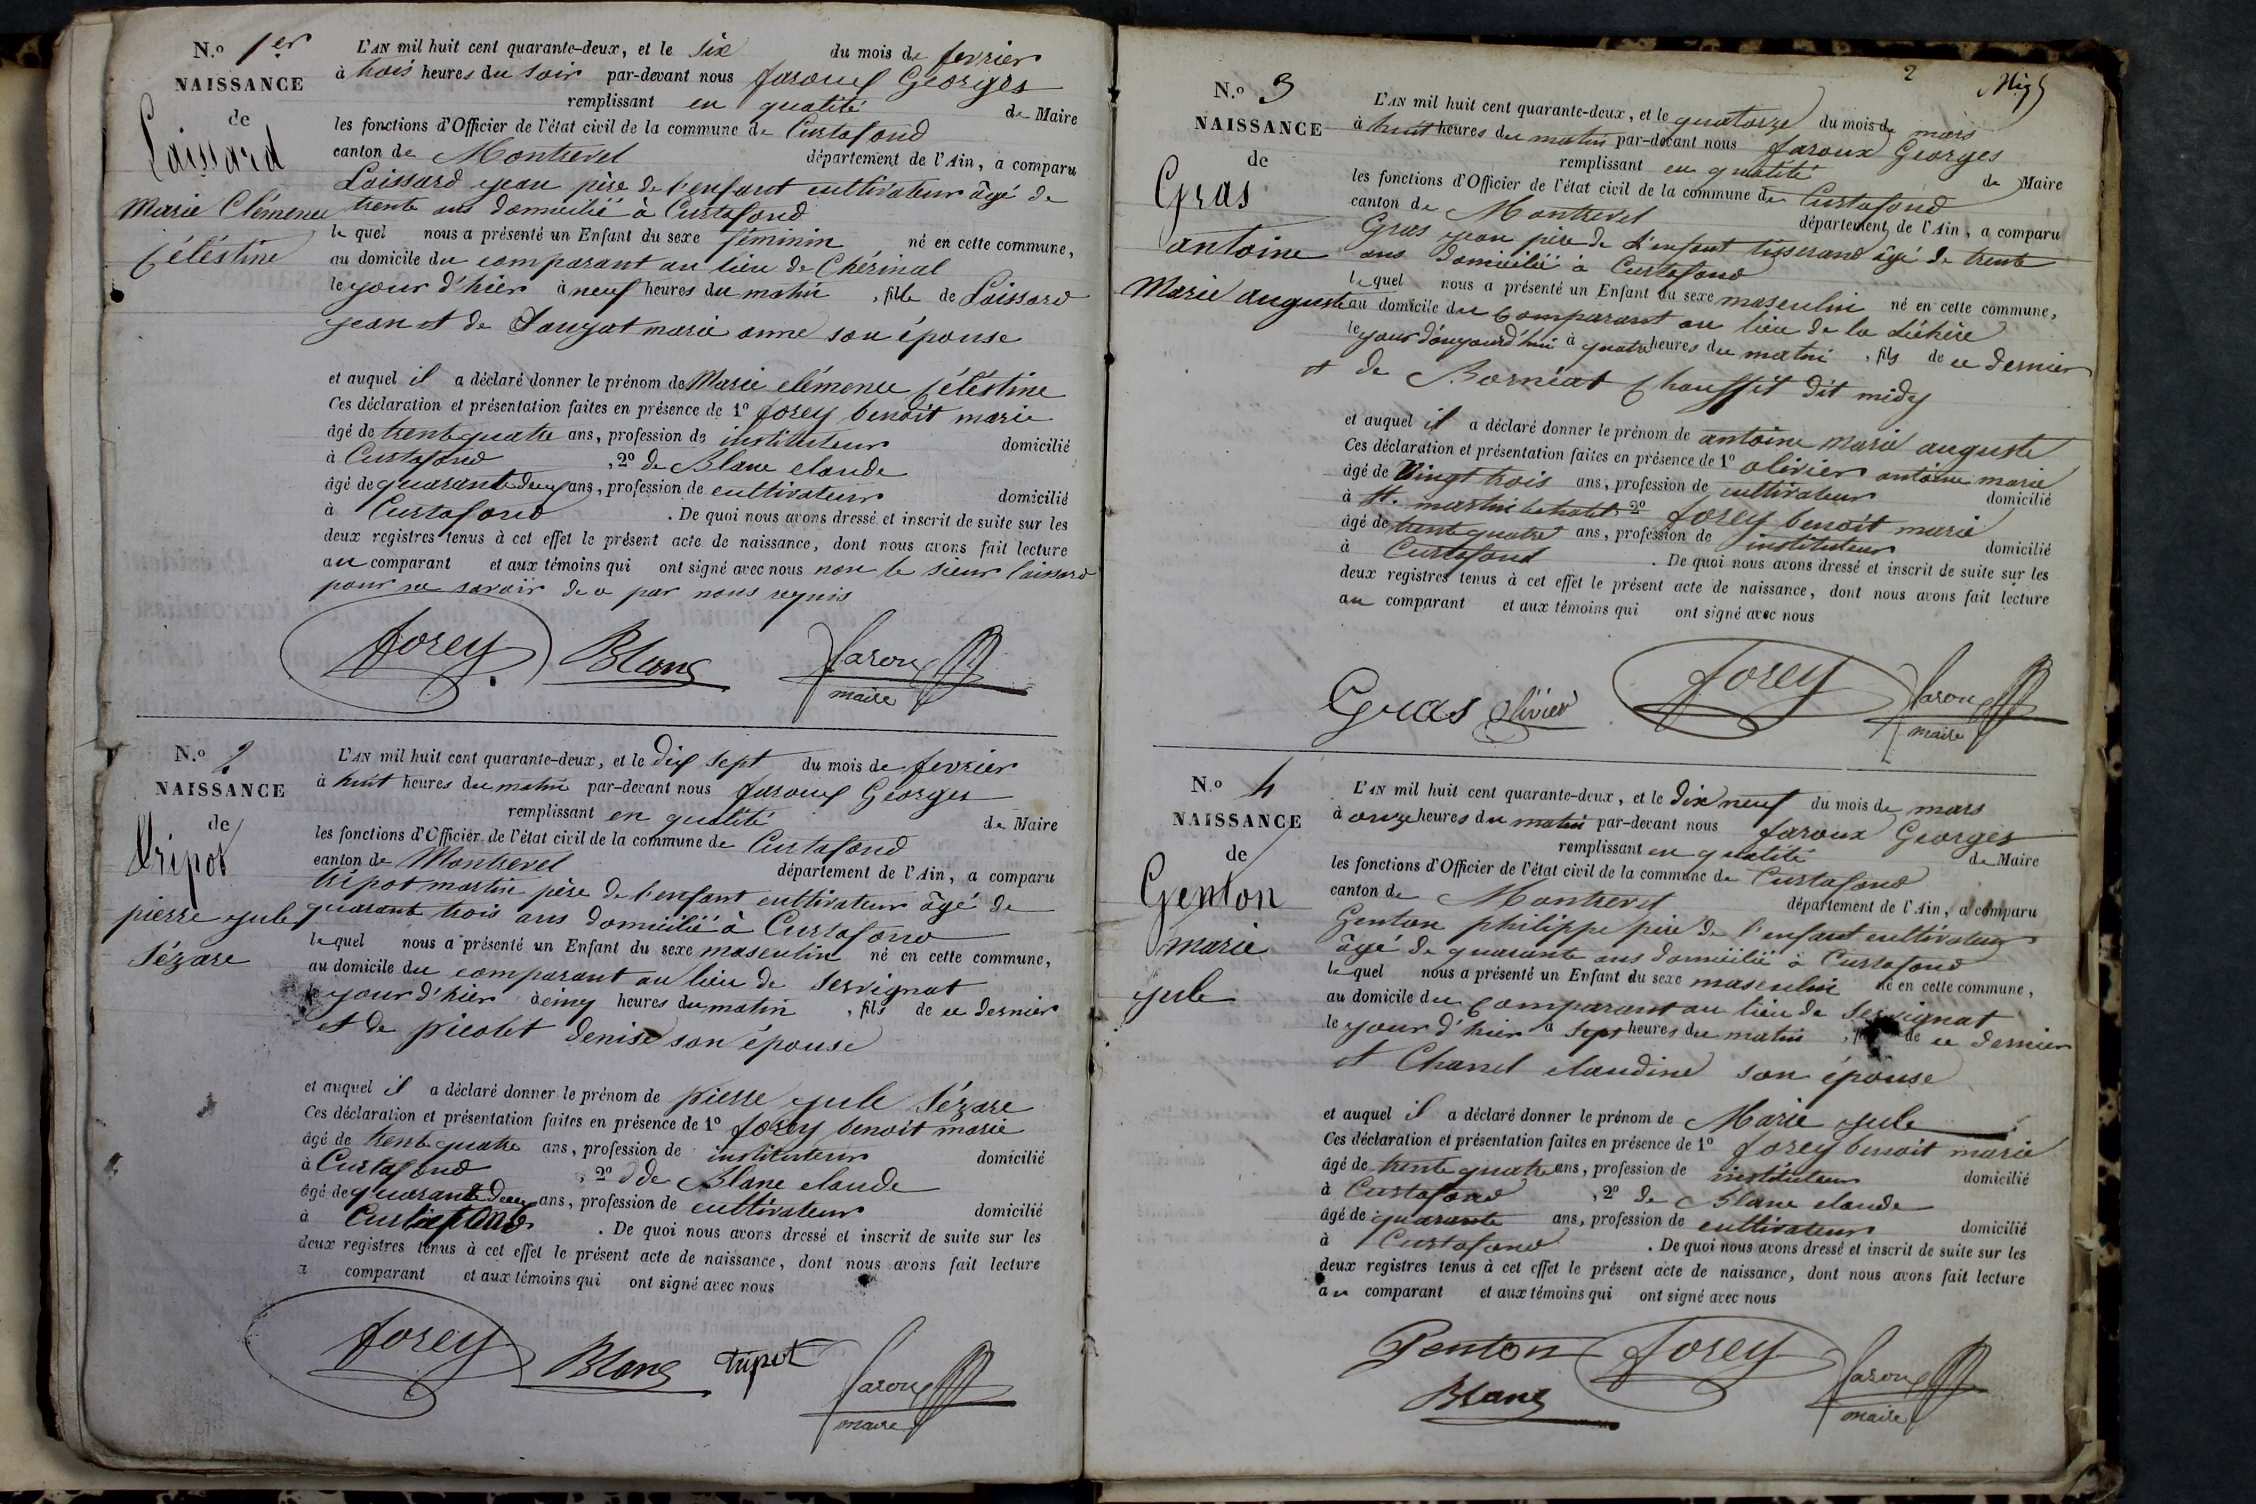 N.o 1er
NAISSANCE
de
Loissard
Marie Clémence
Céléstine
L'AN mil huit cent quarante-deux, et le six du mois de fevrier
à trois heures du soir par-devant nous faroux Georges
remplissant en qualité de Maire
les fonctions d'Officier de l'état civil de la commune de Curtafond
canton de Montrevel département de l'Ain, a comparu
Loissard jean père de l'enfant cultivateur âgé de
trente ans domicilié à Curtafond
lequel nous a présenté un Enfant du sexe féminin né en cette commune,
au domicile du comparant au lieu de Chérinal
le jour d'hier à neuf heures du matin, fille de Loissard
jean et de marie anne son épouse
et auquel il a déclaré donner le prénom de Marie clémence Céléstine
Ces déclaration et présentation faites en présence de 1o forey benoit marie
âgé de trente quatre ans, profession de instituteur domicilié
à Curtafond, 2o de Blanc claude
âgé de quarante deux ans, profession de cultivateur domicilié
à Curtafond. De quoi nous avons dressé et inscrit de suite sur les
deux registres tenus à cet effet le présent acte de naissance, dont nous avons fait lecture
au comparant et aux témoins qui ont signé avec nous non le sieur loissard
pour ne savoir de ce par nous requis
forey Blanc faroux
maire
N.o 2
NAISSANCE
de
tripot
pierre jule
Sézare
L'AN mil huit cent quarante-deux, et le dix sept du mois de fevrier
à huit heures du matin par-devant nous faroux Georges
remplissant en qualité de Maire
les fonctions d'Officier de l'état civil de la commune de Curtafond
canton de Montrevel département de l'Ain, a comparu
tripot martin père de l'enfant cultivateur âgé de
quarante trois ans domicilié à Curtafond
lequel nous a présenté un Enfant du sexe masculin né en cette commune,
au domicile du comparant au lieu de servignat
le jour d'hier à cinq heures du matin, fils de ce dernier
et de picolet denise son épouse
et auquel il a déclaré donner le prénom de pierre jule Sézare
Ces déclaration et présentation faites en présence de 1o forey benoit marie
âgé de trente quatre ans, profession de instituteur domicilié
à Curtafond, 2o de Blanc claude
âgé de quarante deux ans, profession de cultivateur domicilié
à Curtafond. De quoi nous avons dressé et inscrit de suite sur les
deux registres tenus à cet effet le présent acte de naissance, dont nous avons fait lecture
a comparant et aux témoins qui ont signé avec nous
forey Blanc tripot faroux
maire
2
N.o 3
NAISSANCE
de
Gras
antoine
Marie auguste
L'AN mil huit cent quarante-deux, et le quatorze du mois de mars
à huit heures du matin par-devant nous faroux Georges
remplissant en qualité de Maire
les fonctions d'Officier de l'état civil de la commune de Curtafond
canton de Montrevel département de l'Ain, a comparu
Gras jean père de l'enfant tisserand âgé de trente
ans domicilié à Curtafond
lequel nous a présenté un Enfant du sexe masculin né en cette commune,
au domicile du comparant au lieu de la
le jour d'aujourd'hui à quatre heures du matin, fils de ce dernier
et de dit midy
et auquel il a déclaré donner le prénom de antoine marie auguste
Ces déclaration et présentation faites en présence de 1o olivier antoine marie
âgé de vingt trois ans, profession de cultivateur domicilié
à st. martin le chatel, 2o forey benoit marie
âgé de trente quatre ans, profession de instituteur domicilié
à Curtafond. De quoi nous avons dressé et inscrit de suite sur les
deux registres tenus à cet effet le présent acte de naissance, dont nous avons fait lecture
au comparant et aux témoins qui ont signé avec nous
Gras olivier forey faroux
maire
N.o 4
NAISSANCE
de
Genton
marie
jule
L'AN mil huit cent quarante-deux, et le dix neuf du mois de mars
à onze heures du matin par-devant nous faroux Georges
remplissant en qualité de Maire
les fonctions d'Officier de l'état civil de la commune de Curtafond
canton de Montrevel département de l'Ain, a comparu
Genton philippe père de l'enfant cultivateur
âgé de quarante ans domicilié à Curtafond
lequel nous a présenté un Enfant du sexe masculin né en cette commune,
au domicile du comparant au lieu de servignat
le jour d'hier à sept heures du matin, de ce dernier
et Charvet claudine son épouse
et auquel il a déclaré donner le prénom de Marie jule
Ces déclaration et présentation faites en présence de 1o forey benoit marie
âgé de trente quatre ans, profession de instituteur domicilié
à Curtafond, 2o de Blanc claude
âgé de quarante ans, profession de cultivateur domicilié
à Curtafond. De quoi nous avons dressé et inscrit de suite sur les
deux registres tenus à cet effet le présent acte de naissance, dont nous avons fait lecture
au comparant et aux témoins qui ont signé avec nous
Genton forey faroux
Blanc maire